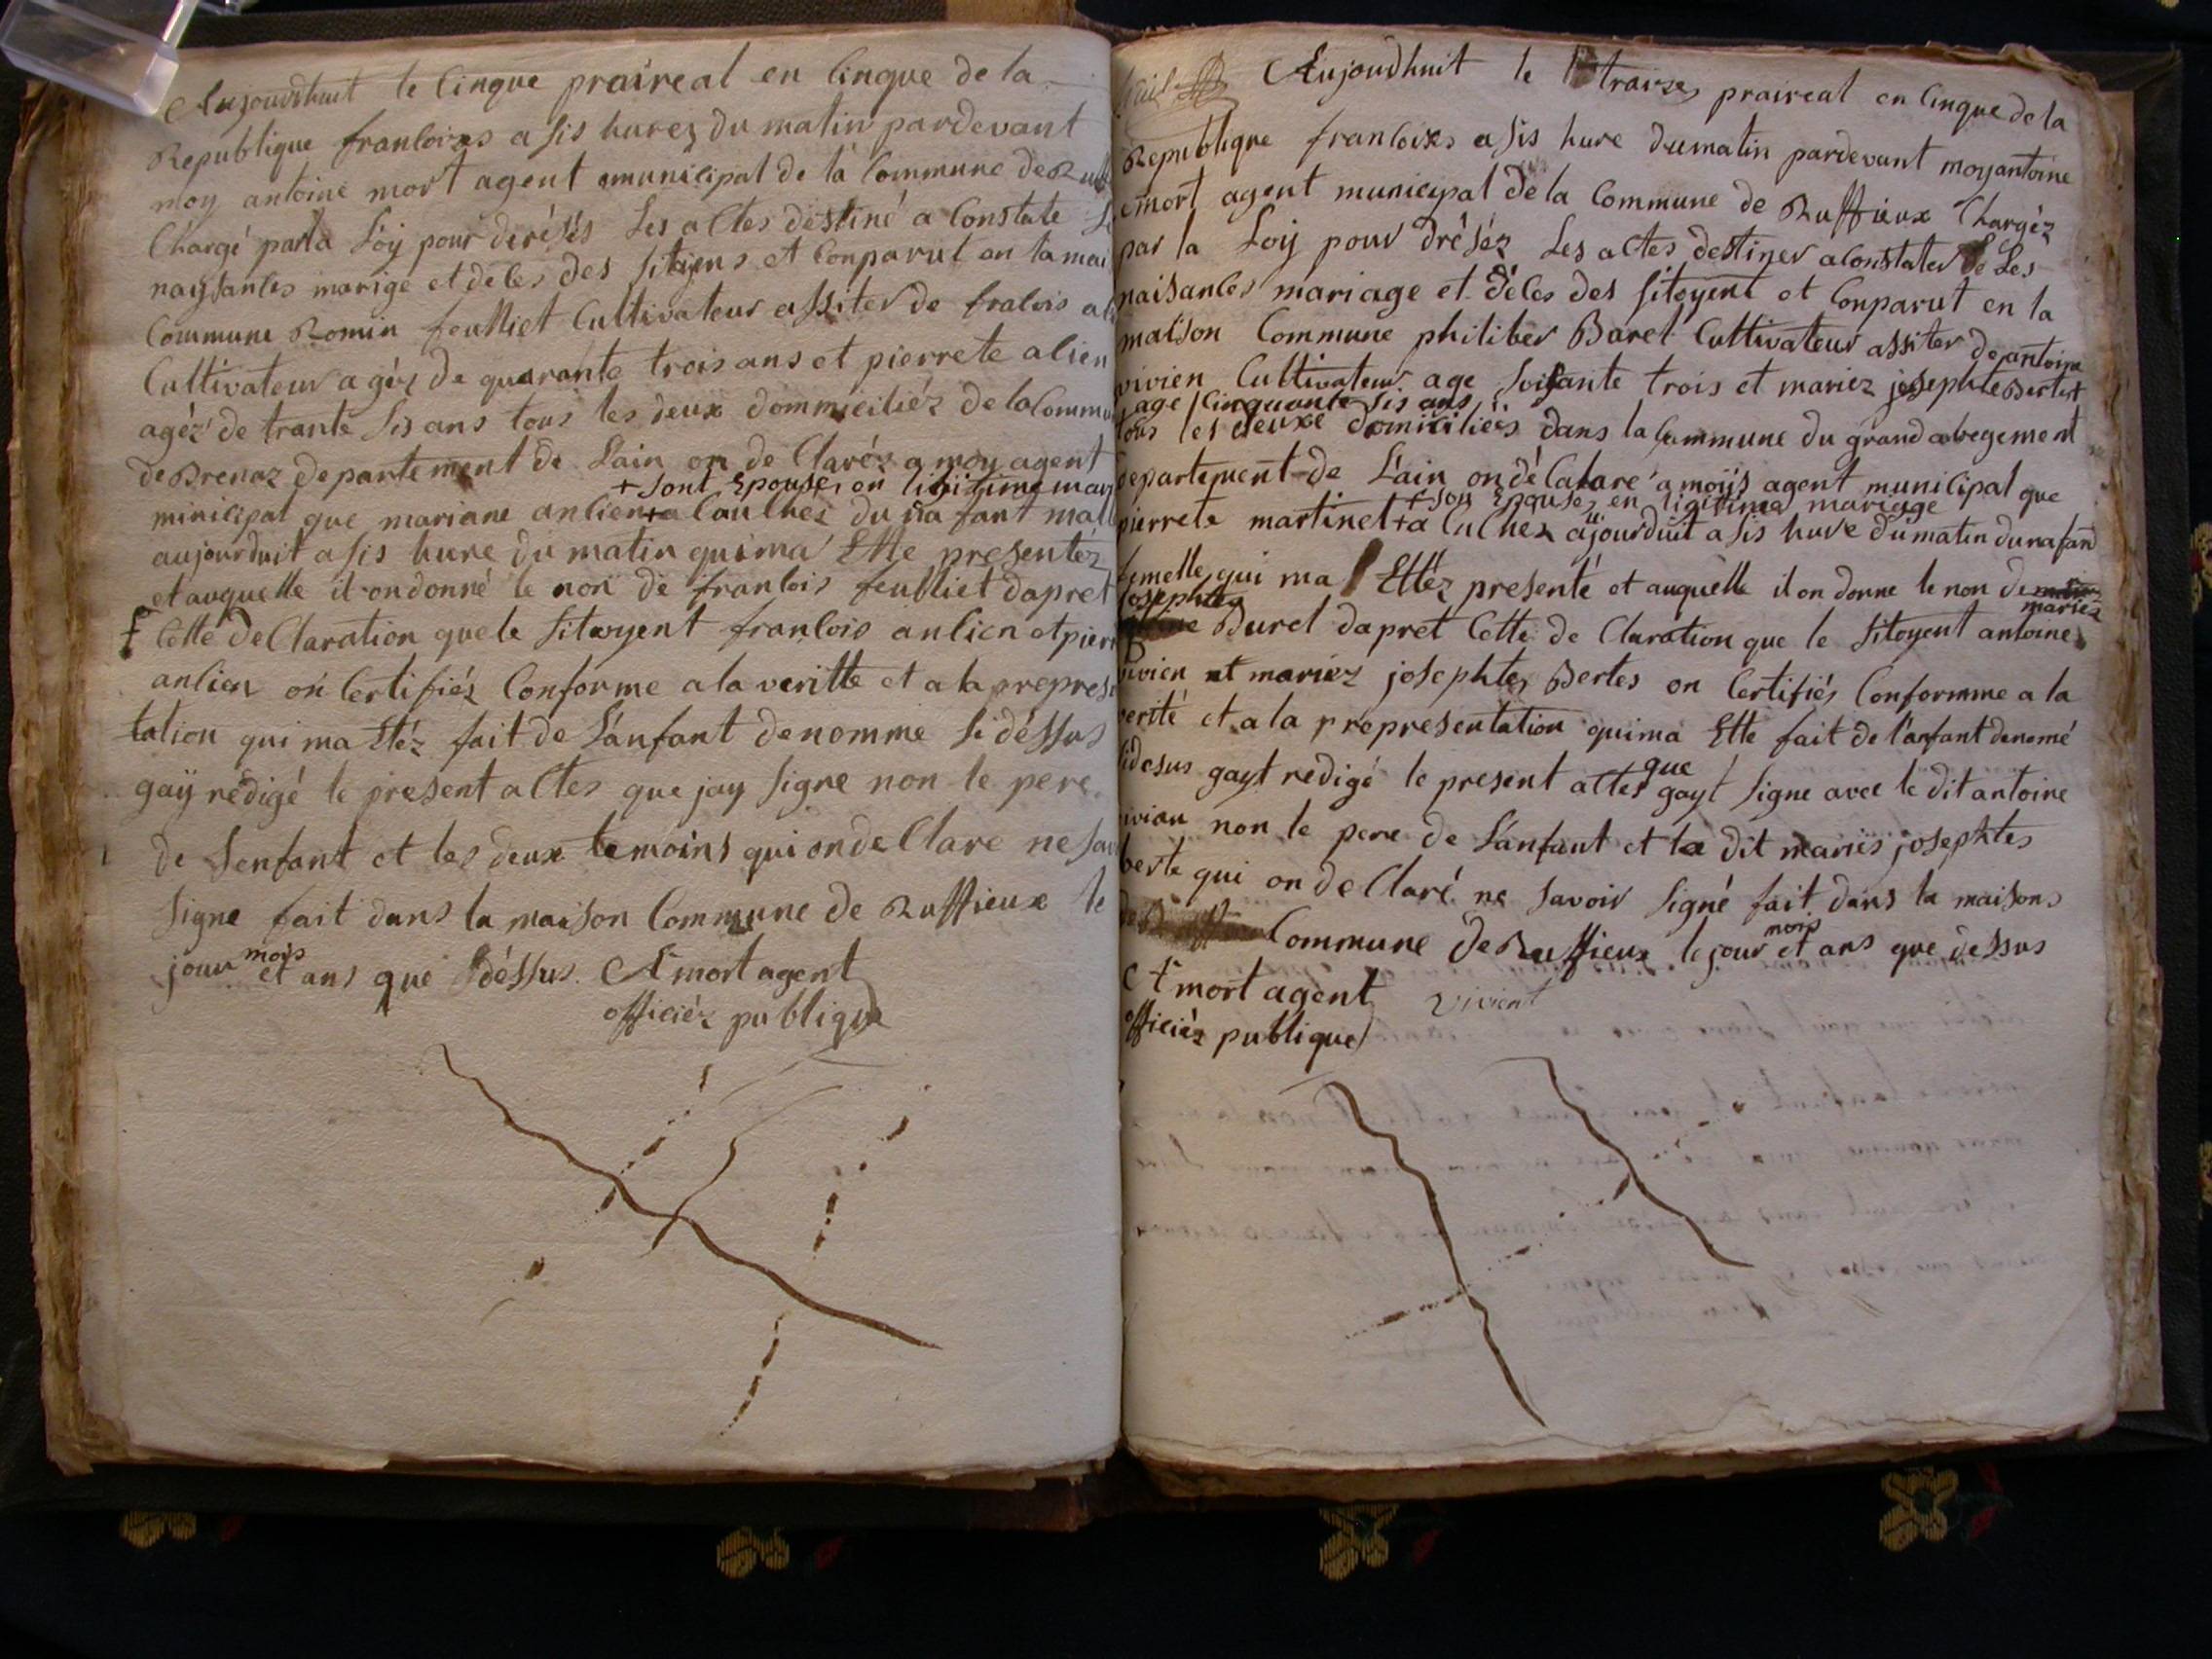 Aujourdhuit le Cinque praireal en Cinque de la
Republique francoises a sis hures du matin pardevant
moy antoine mort agent municipal de la Commune de Ruff
Chargé parla Loÿ pour dirésés Les actes destiné a Constate Le
naysances marige et deces des sitoyens et Conparut en la mai
Commune Romin feulliet Cultivateur assiter de francois
Cultivateur agéz de quarante trois ans et pierrete
agéz de trante sis ans tous les deux dommiciliéz de la Commu
de Brenaz departement de Lain on de Claréz a moy agent
+ sont Epouse, en ligitime mari
minicipal que mariane ancien+a Caulhéz du na fant mall
aujourduit a sis hure du matin qui ma Ette presentéz
et auquelle il on donné le non de francois feulliet dapret
Cette de Claration que le sitoyent francois ancien et pierr
ancien on Certifiéz Conforme a la veritte et a la prepres
tation qui ma Etéz fait de Lánfant denomme si déssus
gaÿ rédigé le present actes que jay signe non le pere
de Lenfant et les deux temoins qui on de Clare ne sav
signe fait dans la maison Commune de Ruffieux le
mois
jour et ans que déssus. At mort agent
officiéz publique
Aujourdhuit le traize, praireal en Cinque de la
Republique francoixes a sis hure dumatin pardevant moy antoine
mort agent municipal de la Commune de Ruffieux Chargéz
par la Loÿ pour drêséz Les actes destiner a Constater Les
naisances mariage et déces des sitoyent et Conparut en la
maison Commune philiber Baret Cultivateur assiter de antoine
vivien Cultivateur age soisante trois et mariez josephte Bertet
age Cinquante sis ans
tous les deuxe domiciliées dans la Commune du grand abegement
departement de Lain on dé Calare a moÿs agent municipal que
+ son Epouse, en ligitime mariage
pierrete martinet+a Culhez ajourduit a sis hure du matin du na fand
femelle qui ma Ettéz presenté et auquelle il on donne le non de
mariez
josephte
Burel dapret Cette de Claration que le sitoyent antoine
vivien et mariez josephte, Bertes on Certifiés Conformme a la
verité et a la prepresentation qui ma Ette fait de l'anfant denomé
sidesus gayt redigé le present actes que gayt signe avec le dit antoine
vivian non le pere de Lánfant et la dit mariés josephtes
berte qui on de Claré ne savoir signé fait dans la maisons
mois
Commune de Ruffieux le jour et ans que dessus
At mort agent vivient
officiéz publique